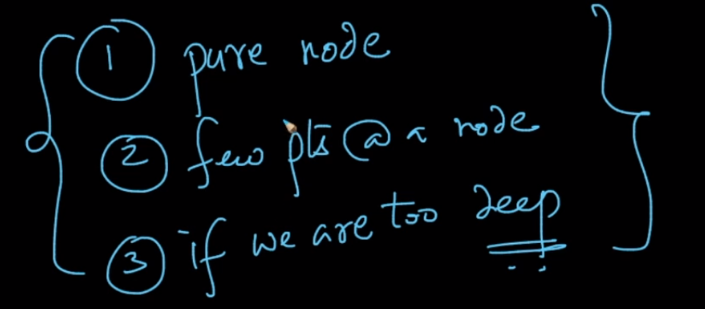 1 pure node
2 few pts @ a node
3 if we are too deep